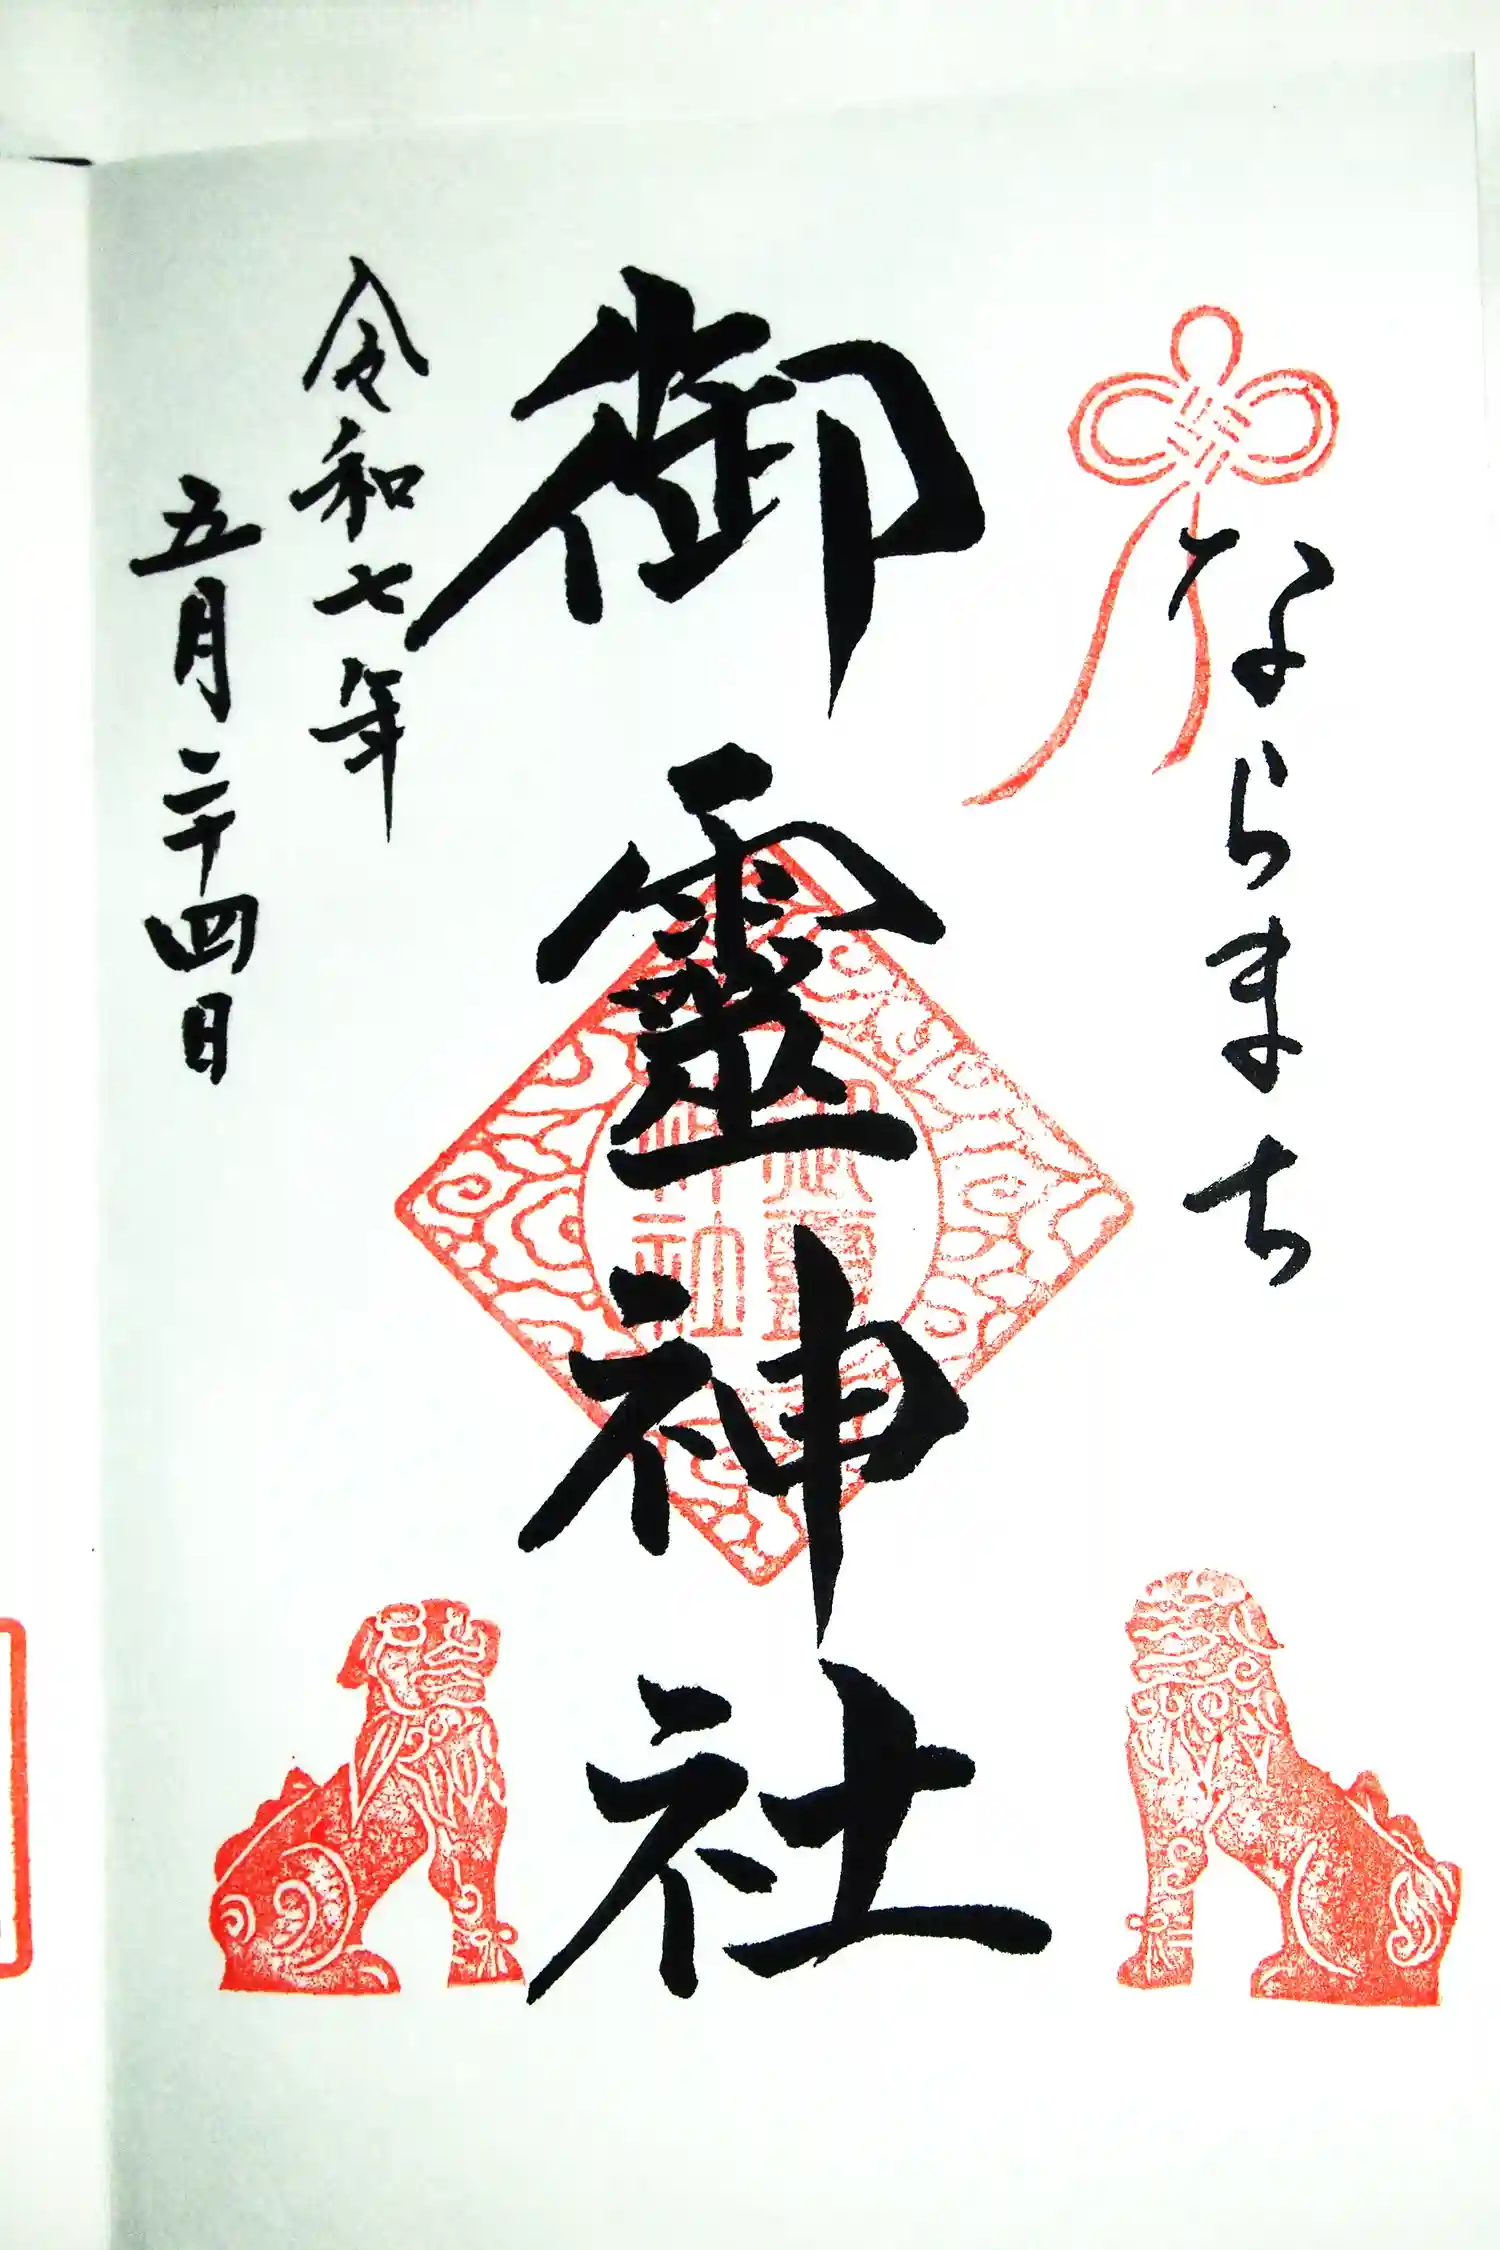 ならまち
御靈神社
令和七年
五月二十四日
御靈
神社